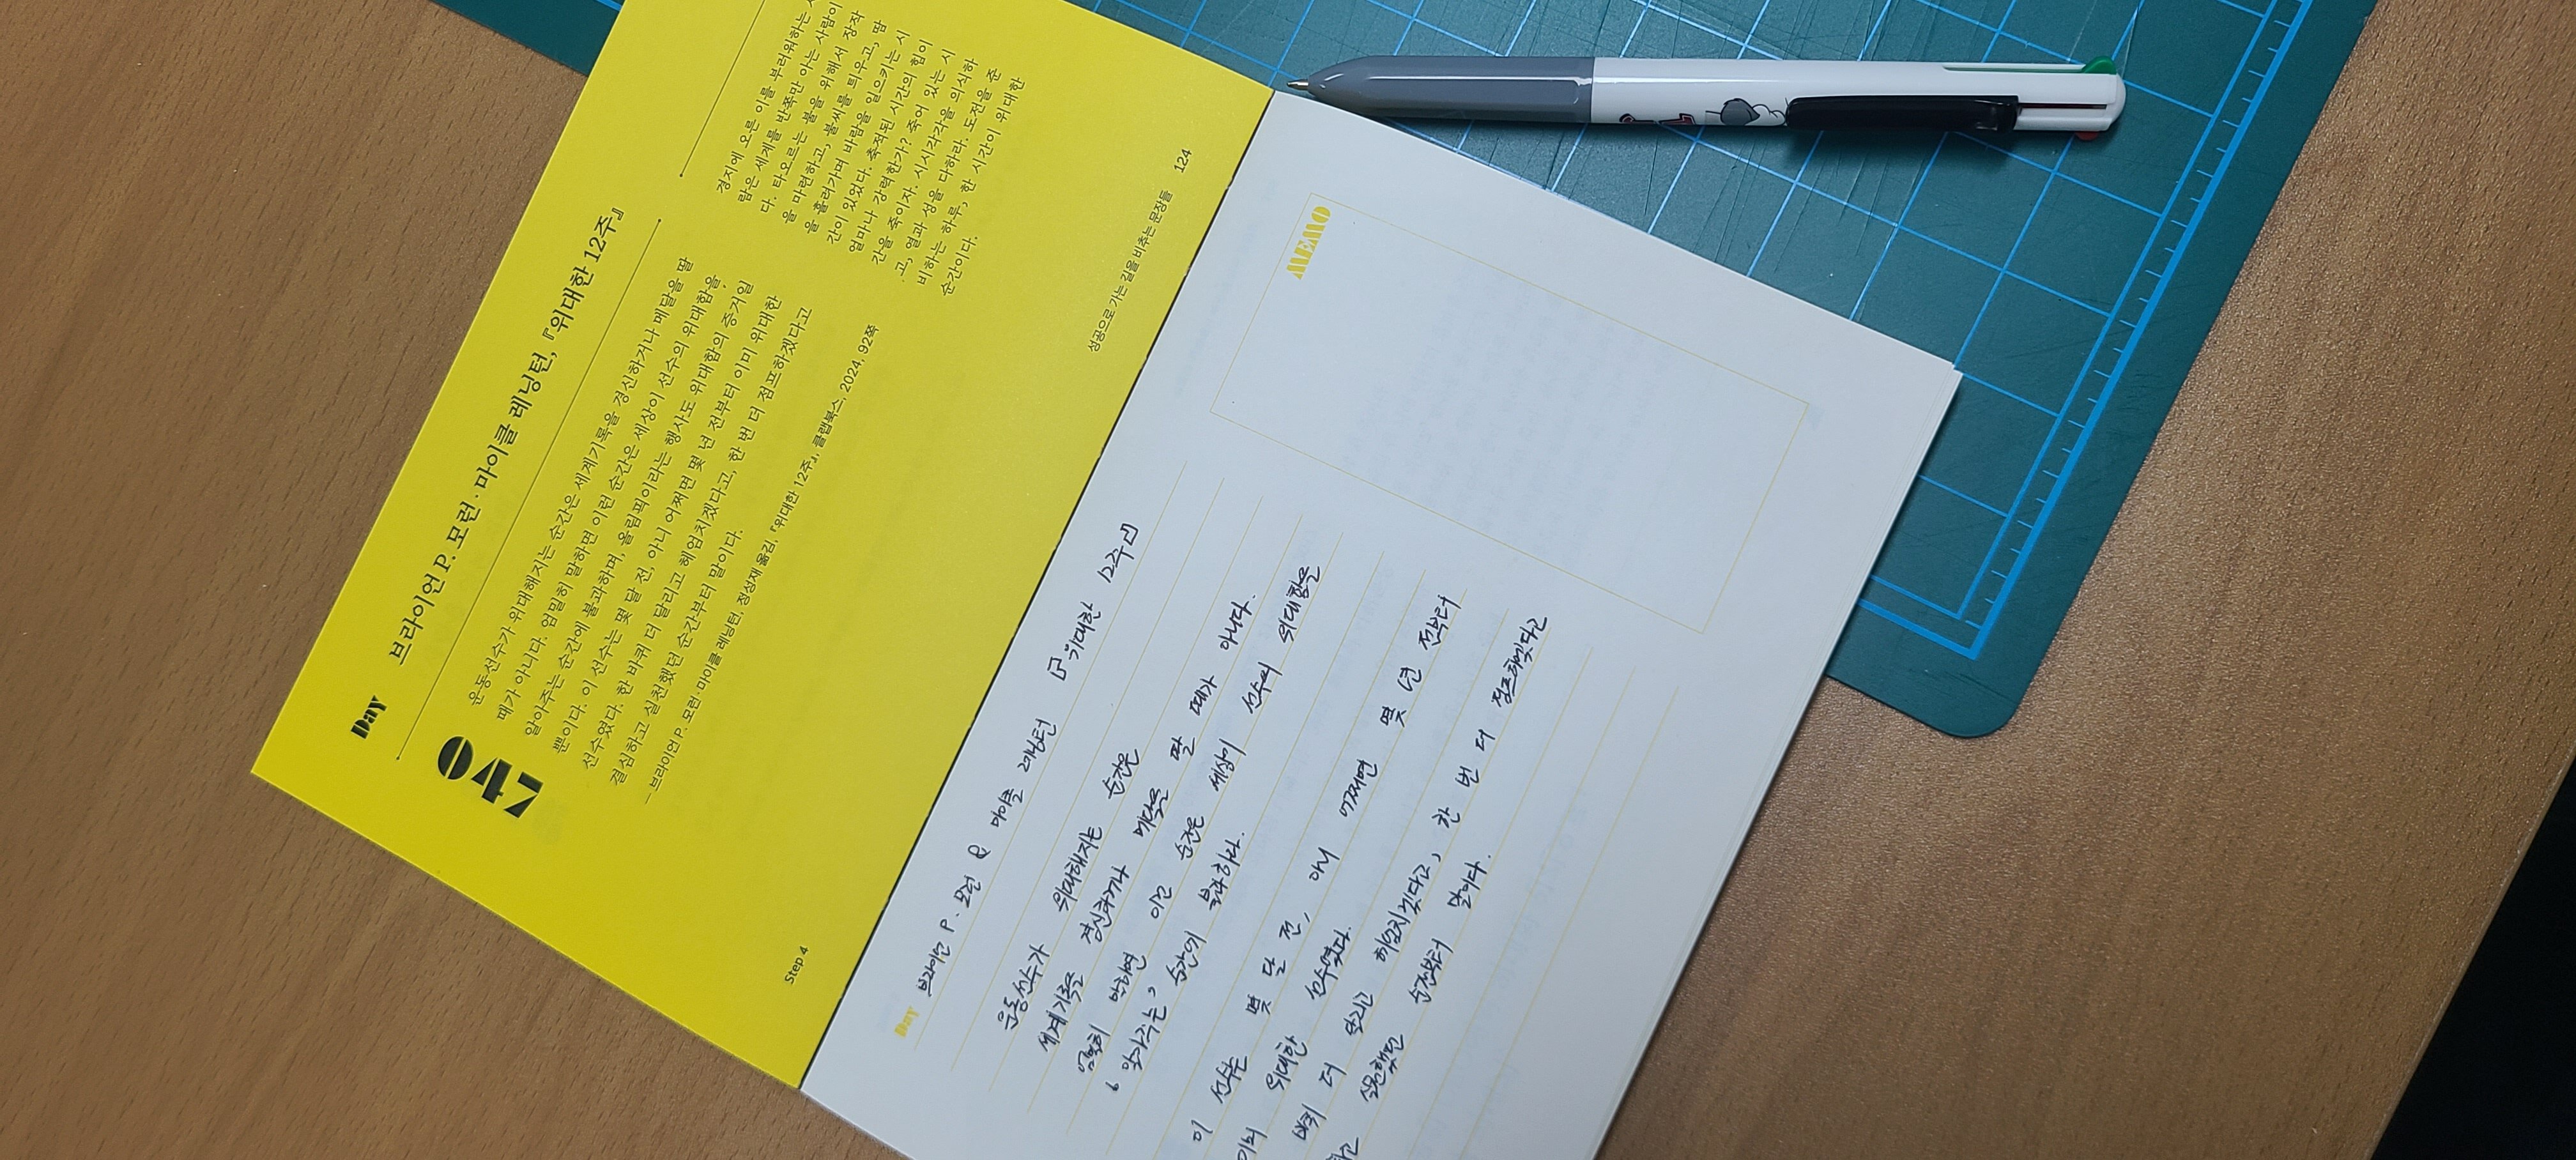 Day
047
브라이언 P. 모런·마이클 레닝턴, 『위대한 12주』
운동선수가 위대해지는 순간은 세계기록을 경신하거나 메달을 딸
때가 아니다. 엄밀히 말하면 이런 순간은 세상이 선수의 위대함을
알아주는 순간에 불과하며, 올림픽이라는 행사도 위대함의 증거일
뿐이다. 이 선수는 몇 달 전, 아니 어쩌면 몇 년 전부터 이미 위대한
선수였다. 한 바퀴 더 달리고 헤엄치겠다고, 한 번 더 점프하겠다고
결심하고 실천했던 순간부터 말이다.
– 브라이언 P. 모런·마이클 레닝턴, 정성재 옮김, 『위대한 12주』, 클랩북스, 2024, 92쪽
경지에 오른 이를 부러워하는
람은 세계를 반쪽만 아는 사람이
다. 타오르는 불을 위해서 장작
을 마련하고, 불씨를 틔우고, 땀
을 흘려가며 바람을 일으키는 시
간이 있었다. 축적된 시간의 힘이
얼마나 강력한가? 죽어 있는 시
간을 죽이자. 시시각각을 의식하
고, 열과 성을 다하라. 도전을 준
비하는 하루, 한 시간이 위대한
순간이다.
Step 4
성공으로 가는 길을 비추는 문장들 124
Day 브라이언 P. 모런 & 마이클 레닝턴 『위대한 12주』
운동선수가 위대해지는 순간은
세계기록을 경신하거나 메달을 딸 때가 아니다.
엄밀히 말하면 이런 순간은 세상이 선수의 위대함을
알아주는, 순간에 불과하다.
이 선수는 몇 달 전, 아니 어쩌면 몇 년 전부터
이미 위대한 선수였다.
바퀴 더 달리고 헤엄치겠다고, 한 번 더 점프하겠다고
실천했던 순간부터 말이다.
MEMO